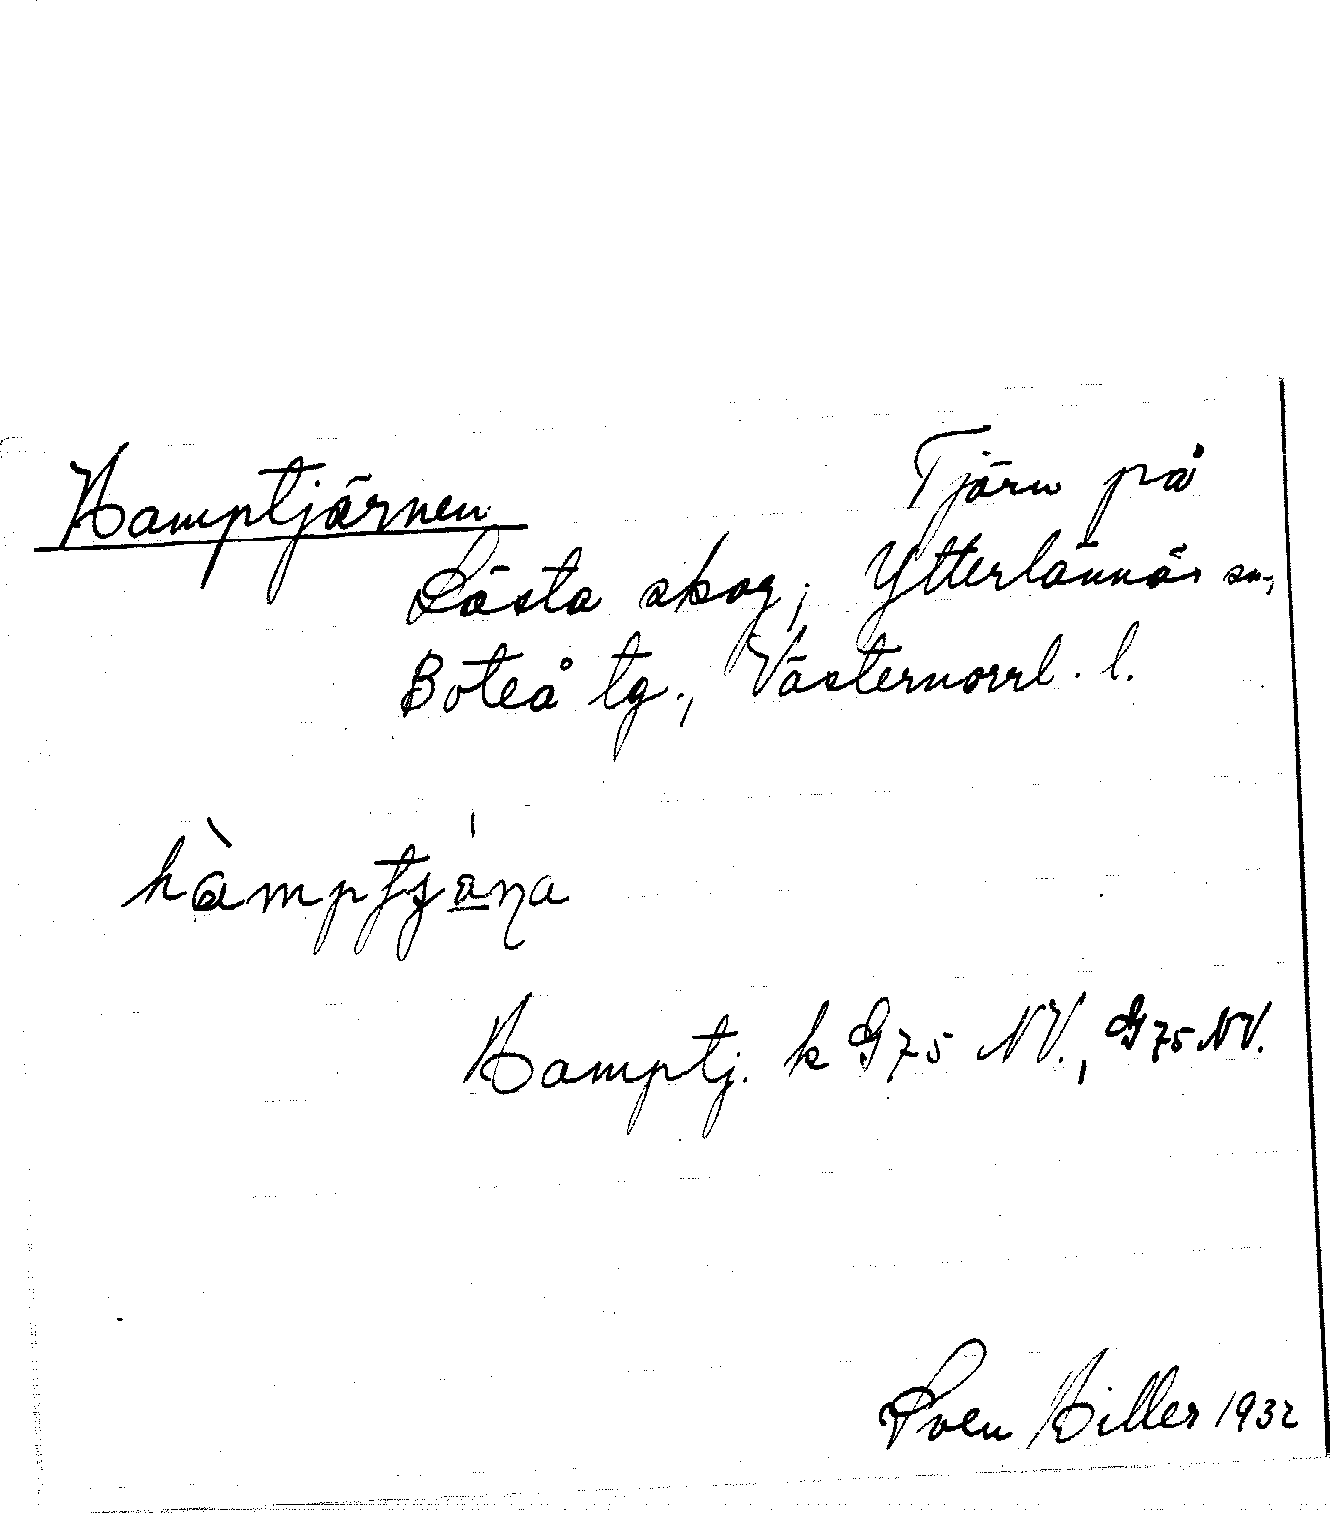 Hamptjärnen
Tjärn på
Lästa skog, Ytterlännäs sn,
Boteå tg., Västernorrl. l.
hàmptjána
Hamptj. k G75 NV., G75 NV.
Sven Hiller 1932